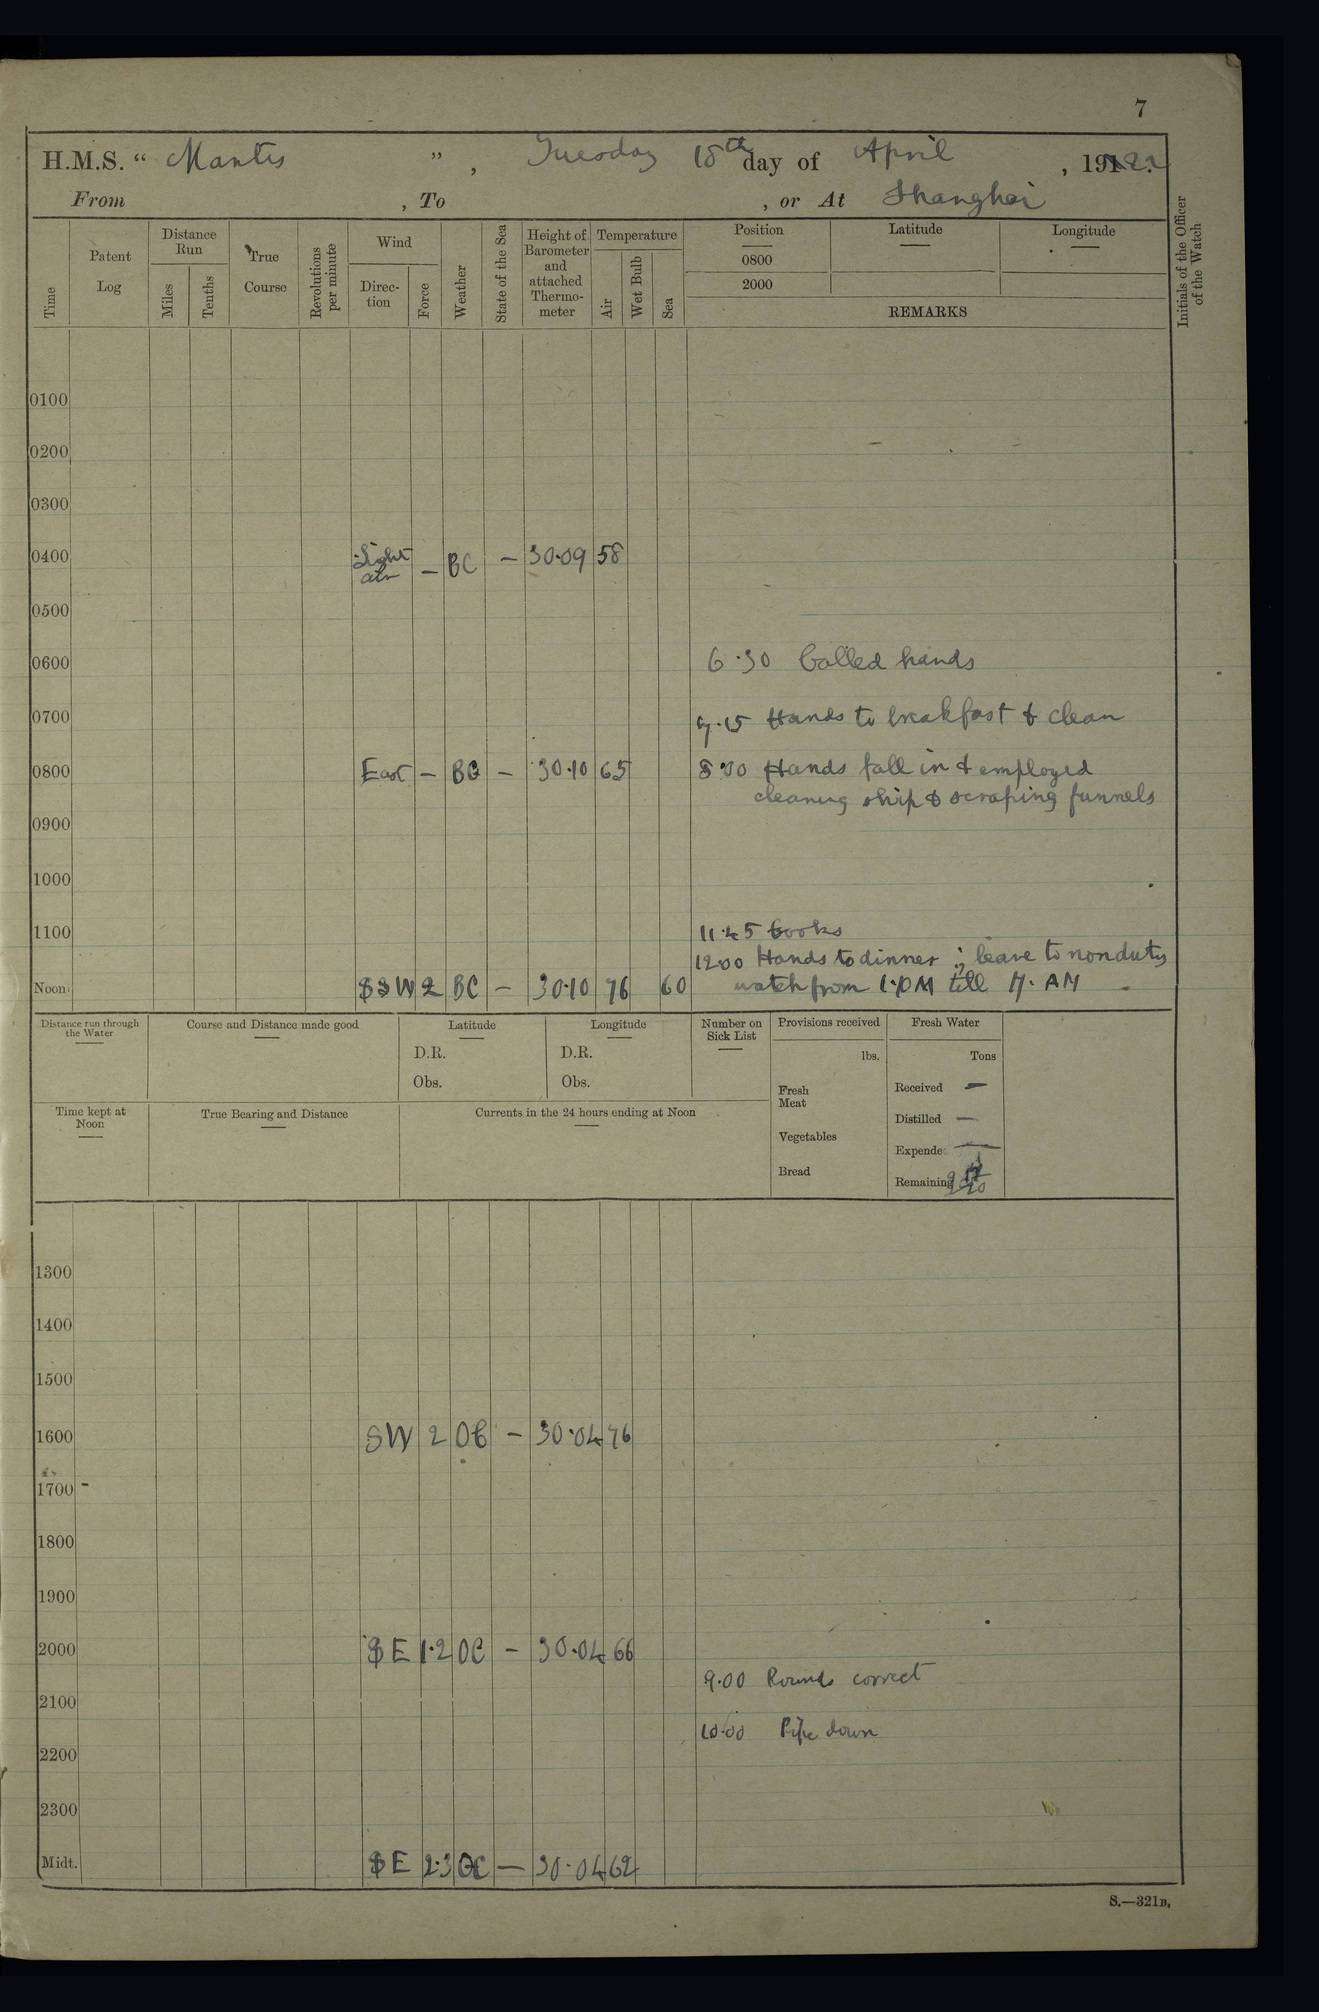 7
H.M.S. “ Mantis ” , Tuesday 18th day of April , 1922.
From , To , or At Shanghai
Time
Patent Log
Distance Run
Miles
Tenths
True Course
Revolutions per minute
Wind
Direc-tion
Force
Weather
State of the Sea
Height of Barometer and attached Thermo-meter
Temperature
Air
Wet Bulb
Sea
Position
0800
2000
Latitude
Longitude
REMARKS
Initials of the Officer of the Watch
0100
0200
0300
0400 Light air – BC – 30.09 58
0500
0600 6.30 Called hands
0700 7.15 Hands to breakfast & clean
0800 East – BC – 30.10 65 8.30 Hands fall in & employed
cleaning ship & scraping funnels
0900
1000
1100 11.45 Cooks
12.00 Hands to dinner ; leave to non duty
Noon SSW 2 BC – 30.10 76 60 watch from 1.PM till 7.AM
Distance run through the Water
Course and Distance made good
Latitude
D.R.
Obs.
Longitude
D.R.
Obs.
Number on Sick List
Provisions received
lbs.
Fresh Meat
Vegetables
Bread
Fresh Water
Tons
Received –
Distilled –
Expende
Remaining
Time kept at Noon
True Bearing and Distance
Currents in the 24 hours ending at Noon
1300
1400
1500
1600 SW 2 OC – 30.04 76
1700
1800
1900
2000 SE 1.2 OC – 30.04 66
9.00 Rounds correct
2100
10.00 Pipe down
2200
2300
Midt. SE 2.3 OC – 30.04 62
S.—321B.